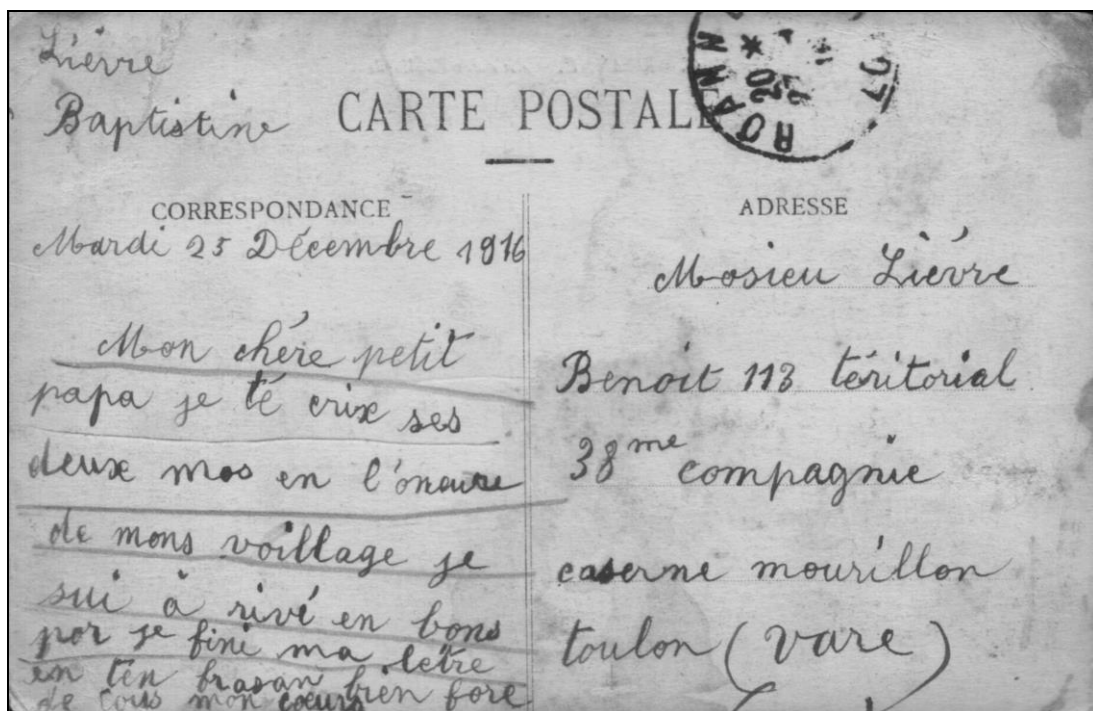 Lièvre
Baptistine
CARTE POSTALE
ROANN
CORRESPONDANCE
Mardi 25 Décembre 1916
Mon chére petit
papa je té crix ses
deux mos en l'óneure
de mons voillage je
sui à rivé en bons
por je fini ma letre
en ten brasan bien fore
de tous mon cœurs
ADRESSE
Mosieu Liévre
Benoit 113 téritorial
38me compagnie
caserne mourillon
toulon (vare)